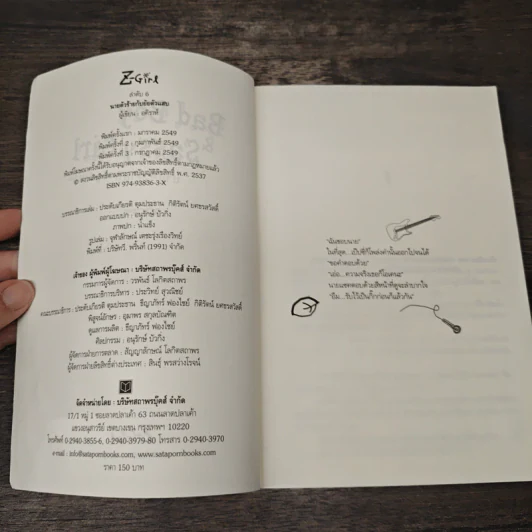 Z-Girl
ลำดับ 6
นายตัวร้ายกับยัยตัวแสบ
ผู้เขียน :
พิมพ์ครั้งแรก : มกราคม 2549
พิมพ์ครั้งที่ 2 : กุมภาพันธ์ 2549
พิมพ์ครั้งที่ 3 : กรกฎาคม 2549
พิมพ์โดยได้รับอนุญาตจากเจ้าของลิขสิทธิ์ตามกฎหมายแล้ว
© สงวนลิขสิทธิ์ตามพระราชบัญญัติลิขสิทธิ์ พ.ศ. 2537
ISBN 974-93836-3-X
บรรณาธิการเล่ม : ประดับเกียรติ ตุมประธาน กิติรัตน์
ออกแบบปก : อนุรักษ์ บัวกิ่ง
ภาพปก : น้ำแข็ง
รูปเล่ม : จุฬาลักษณ์ เตชะรุ่งเรืองวิทย์
พิมพ์ที่ : บริษัทวี. พริ้นท์ (1991) จำกัด
เจ้าของ ผู้พิมพ์ผู้โฆษณา : บริษัทสถาพรบุ๊คส์ จำกัด
กรรมการผู้จัดการ : วรพันธ์ โลกิตสถาพร
บรรณาธิการบริหาร : ประวิทย์ สุวณิชย์
คณะบรรณาธิการ : ประดับเกียรติ ตุมประธาน ธัญาภัทร์ ฟองไชย์ กิติรัตน์
พิสูจน์อักษร : อุมาพร สกุลบัณฑิต
ดูแลการผลิต : ธัญาภัทร์ ฟองไชย์
ศิลปกรรม : อนุรักษ์ บัวกิ่ง
ผู้จัดการฝ่ายการตลาด : สัญญาลักษณ์ โลกิตสถาพร
ผู้จัดการฝ่ายลิขสิทธิ์ต่างประเทศ : สินธุ์ พรสว่างโรจน์
จัดจำหน่ายโดย : บริษัทสถาพรบุ๊คส์ จำกัด
17/1 หมู่ 1 ซอยลาดปลาเค้า 63 ถนนลาดปลาเค้า
แขวงอนุสาวรีย์ เขตบางเขน กรุงเทพฯ 10220
โทรศัพท์ 0-2940-3855-6, 0-2940-3979-80 โทรสาร 0-2940-3970
e-mail : info@satapornbooks.com, www.satapornbooks.com
ราคา 150 บาท
"ฉันชอบนาย"
ในที่สุด...เป็ปซี่ก็โพล่งคำนั้นออกไปจนได้
"ขอคำตอบด้วย"
"เอ่อ...ความจริงเธอก็โอเคนะ"
นายแชคตอบด้วยสีหน้าที่ดูจะลำบากใจ